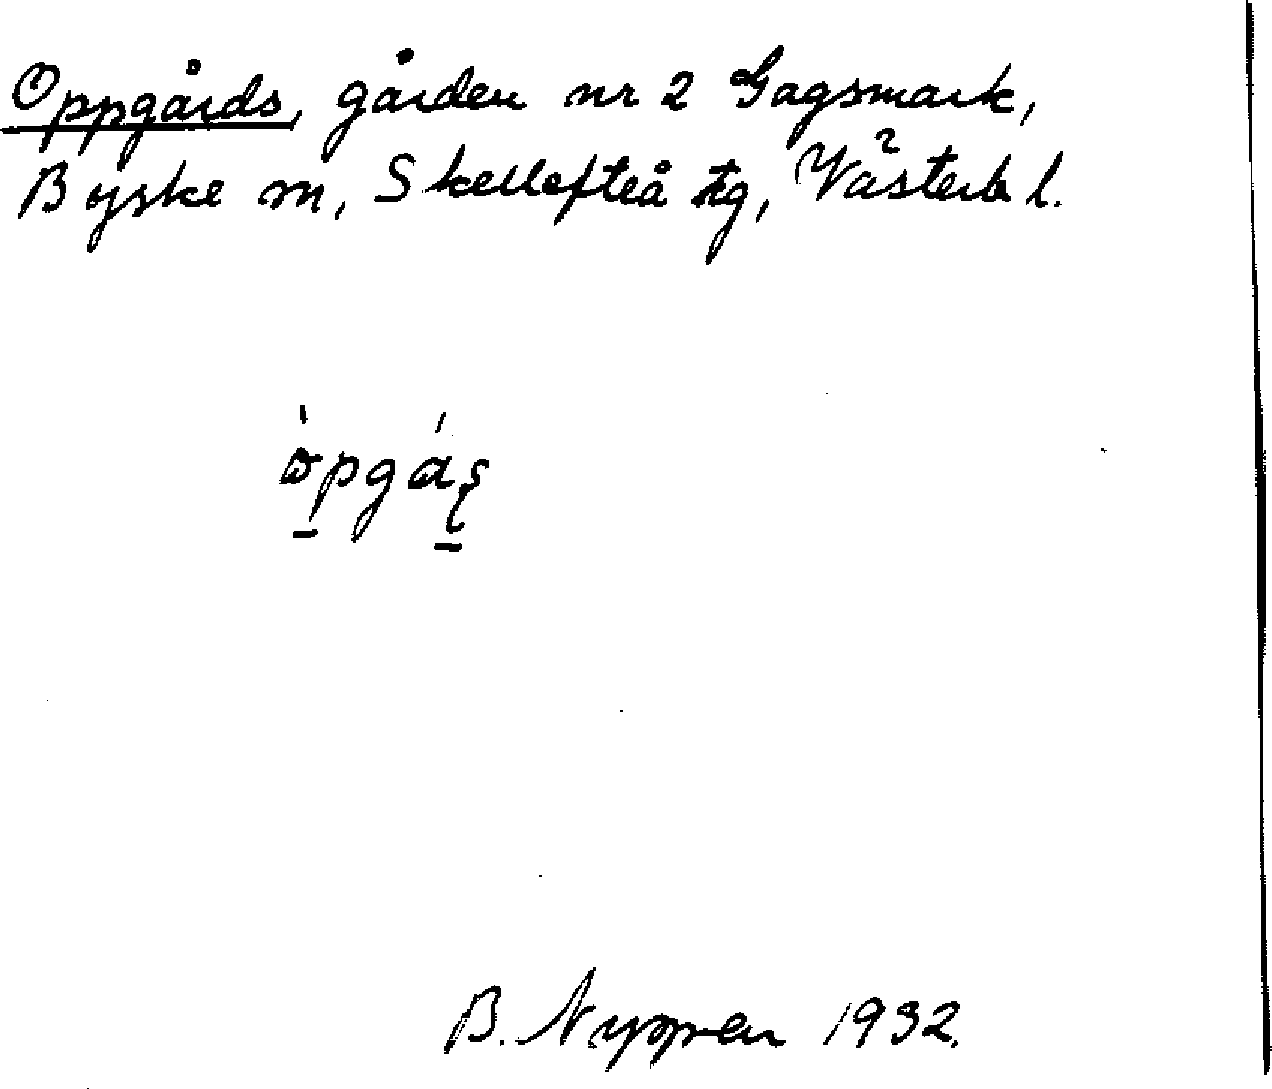 Oppgårds, gården nr 2 Gagsmark,
Byske sn, Skellefteå tg, Västerb l.
òpgás
B. 1932.